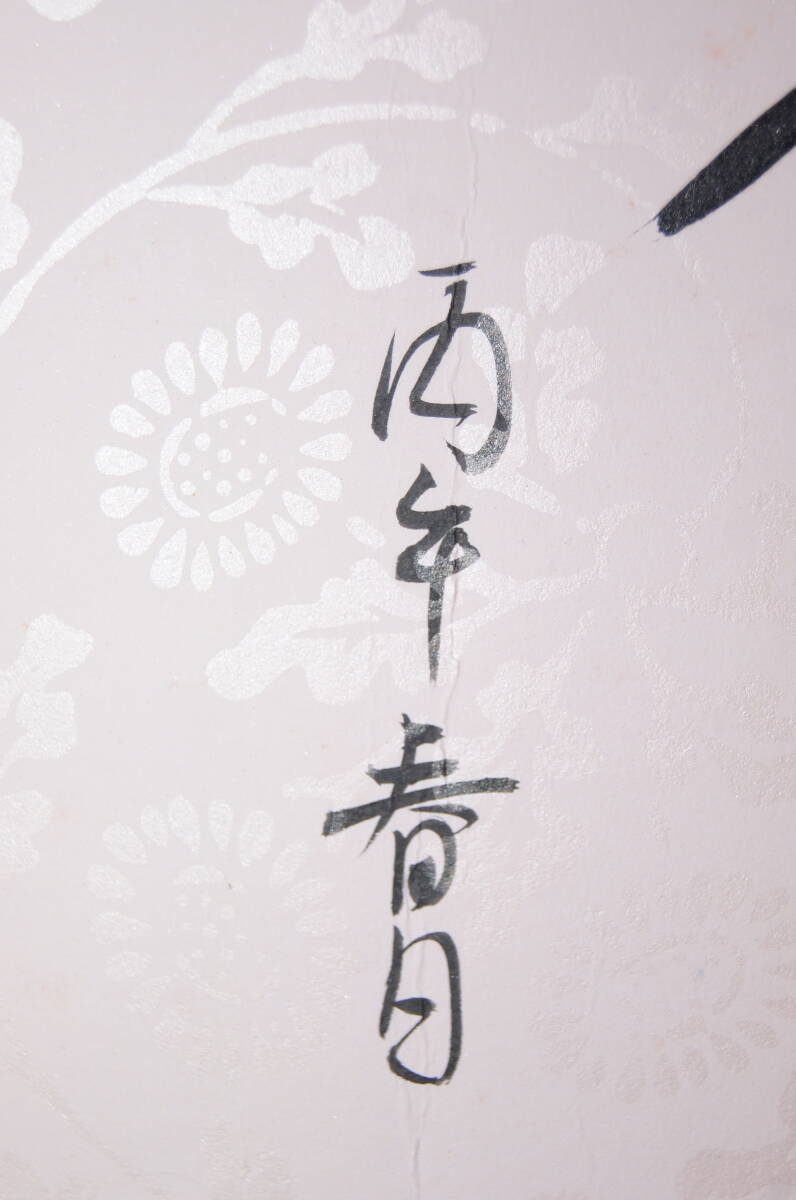 丙午春日